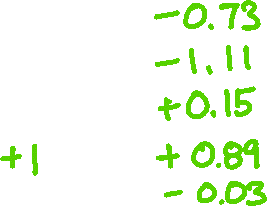 -0.73
-1.11
+0.15
+1 +0.89
-0.03